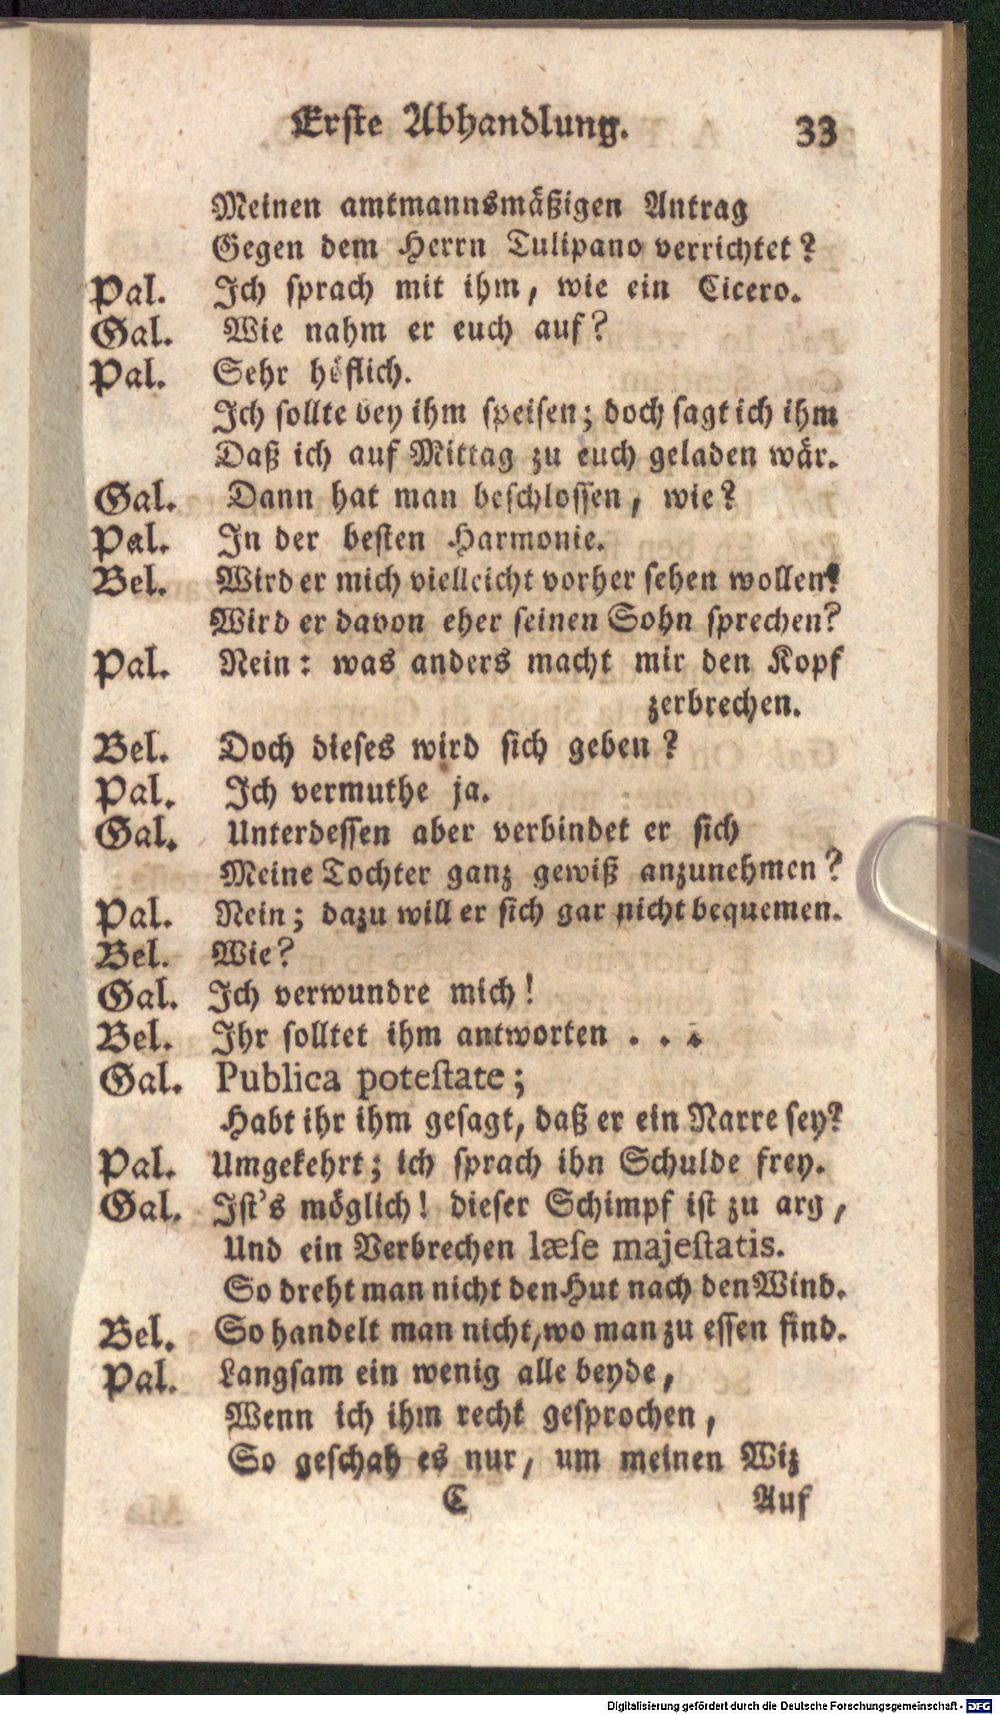 Erste Abhandlung. 33
Meinen amtmannsmäßigen Antrag
Gegen dem Herrn Tulipano verrichtet?
Pal. Ich sprach mit ihm, wie ein Cicero.
Gal. Wie nahm er euch auf?
Pal. Sehr höflich.
Ich sollte bey ihm speisen; doch sagt ich ihm
Daß ich auf Mittag zu euch geladen wär.
Gal. Dann hat man beschlossen, wie?
Pal. In der besten Harmonie.
Bel. Wird er mich vielleicht vorher sehen wollen?
Wird er davon eher seinen Sohn sprechen?
Pal. Nein: was anders macht mir den Kopf
zerbrechen.
Bel. Doch dieses wird sich geben?
Pal. Ich vermuthe ja.
Gal. Unterdessen aber verbindet er sich
Meine Tochter ganz gewiß anzunehmen?
Pal. Nein; dazu will er sich gar nicht bequemen.
Bel. Wie?
Gal. Ich verwundre mich!
Bel. Ihr solltet ihm antworten . . .
Gal. Publica potestate;
Habt ihr ihm gesagt, daß er ein Narre sey?
Pal. Umgekehrt; ich sprach ihn Schulde frey.
Gal. Ist's möglich! dieser Schimpf ist zu arg,
Und ein Verbrechen læse majestatis.
So dreht man nicht den Hut nach den Wind.
Bel. So handelt man nicht, wo man zu essen find.
Pal. Langsam ein wenig alle beyde,
Wenn ich ihm recht gesprochen,
So geschah es nur, um meinen Wiz
C Auf
Digitalisierung gefördert durch die Deutsche Forschungsgemeinschaft - DFG